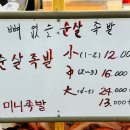 뼈 없는 순살 족발
순살족발 小 (1~2) 12.000
中 (2~3) 16.000
大 (4~5) 24.000
미니족발 13.000